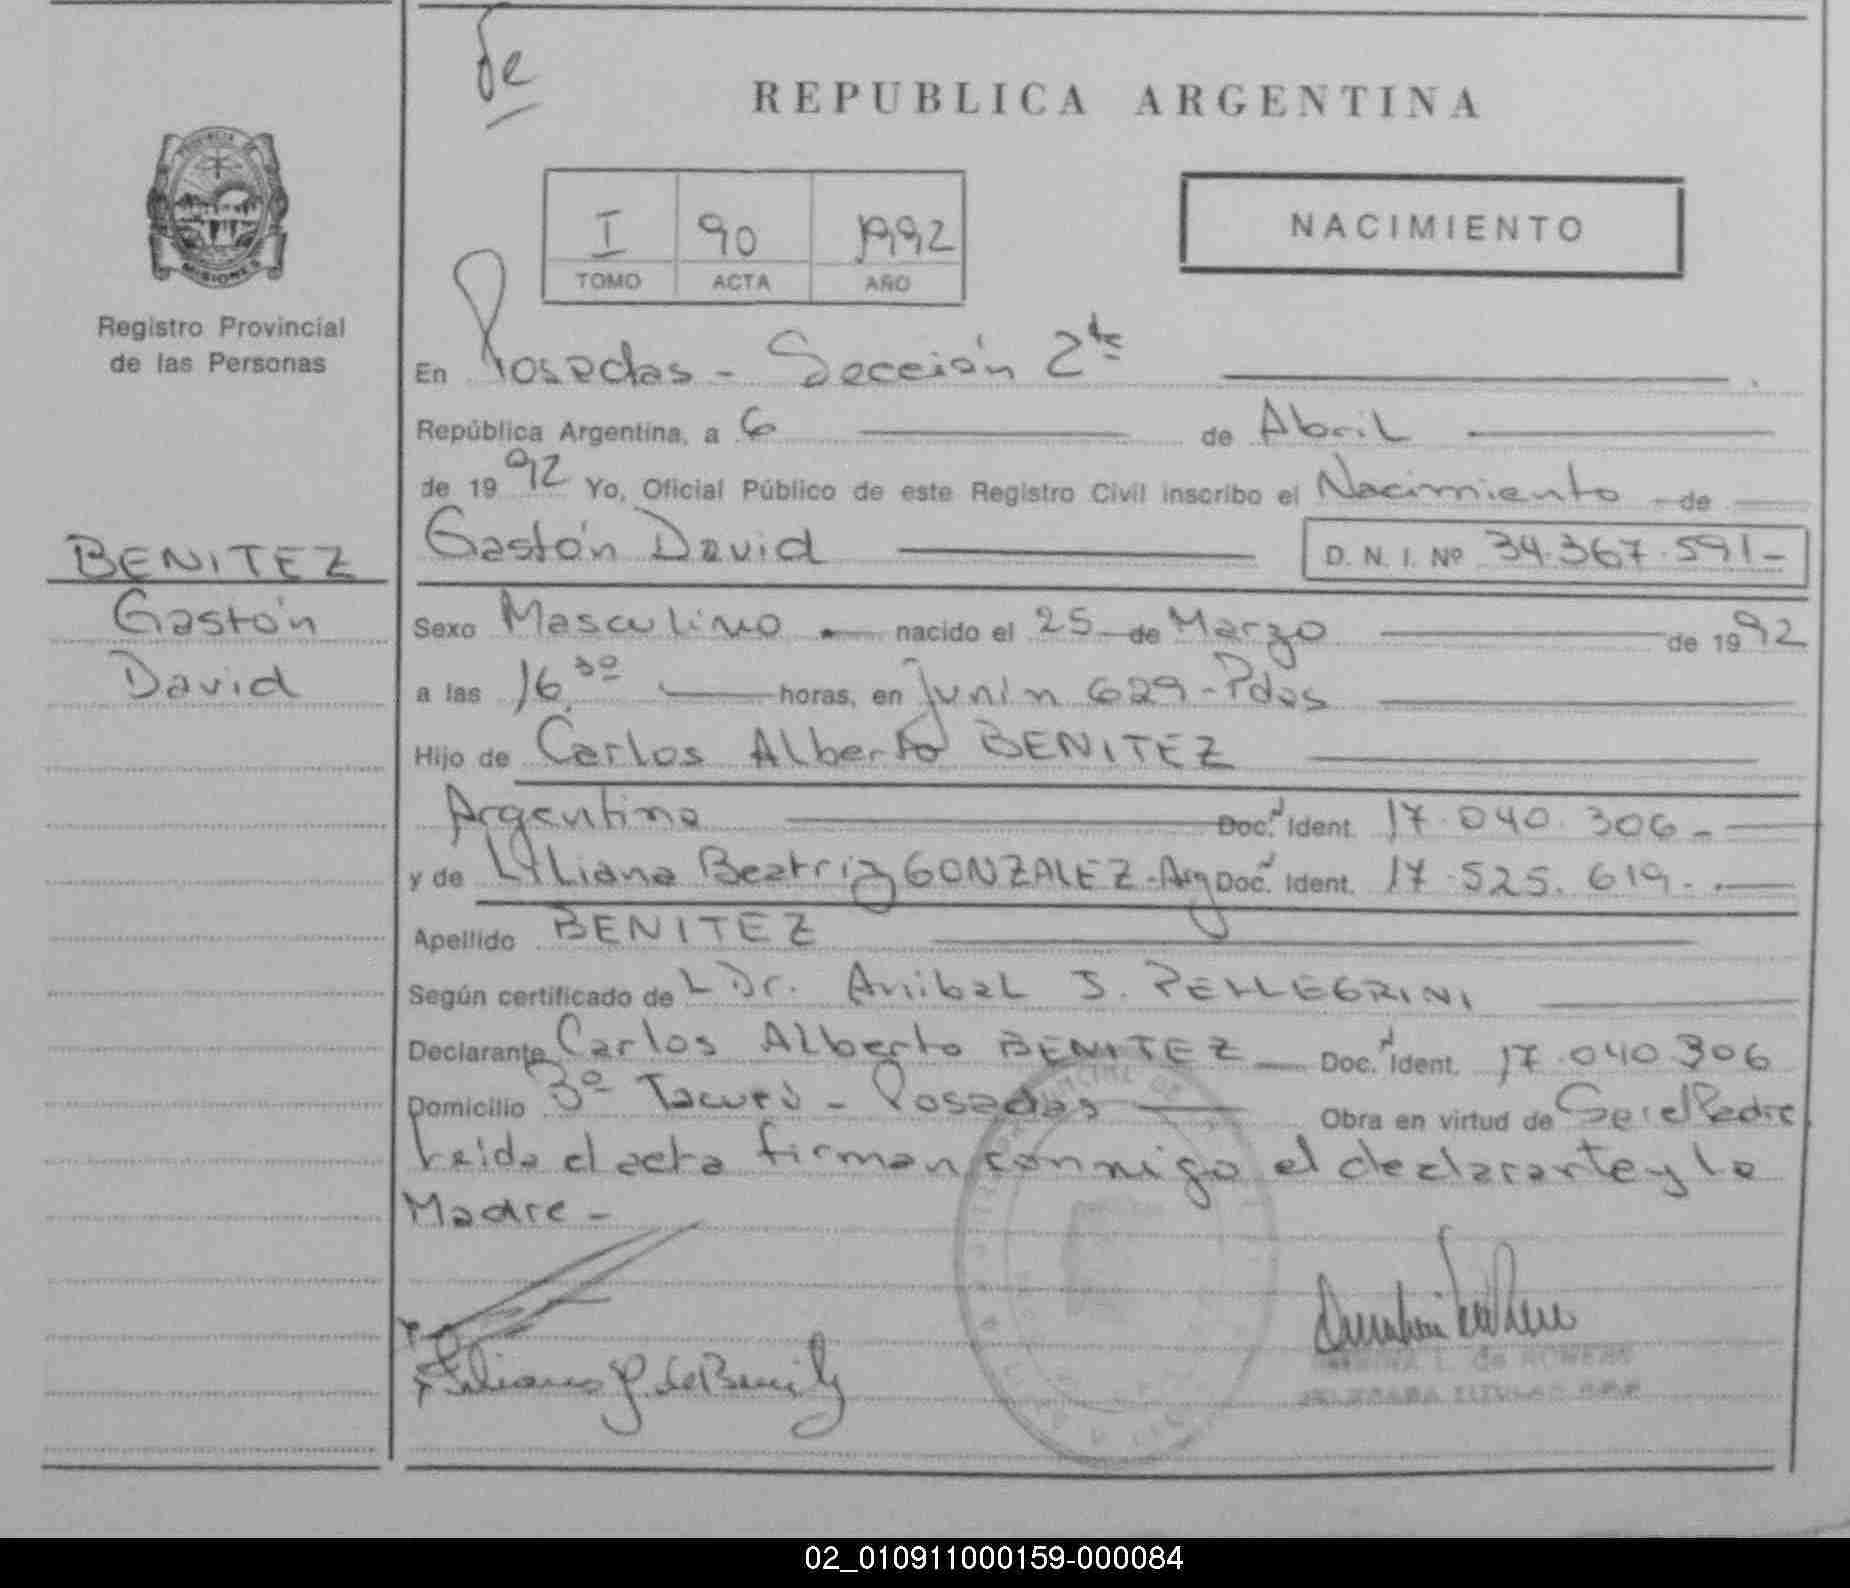 de
REPUBLICA ARGENTINA
PROVINCIA DE
MISIONES
Registro Provincial
de las Personas
I 90 1992
TOMO ACTA AÑO
NACIMIENTO
En Posadas - Sección 2da
República Argentina, a 6 de Abril
de 1992 Yo, Oficial Público de este Registro Civil inscribo el Nacimiento de
Gastón David D. N. I. Nº 34.367.591-
BENITEZ
Gastón
David
Sexo Masculino nacido el 25 de Marzo de 1992
a las 16,30 horas, en Junín 629-Pdas
Hijo de Carlos Alberto BENITEZ
Argentino Doc. Ident. 17.040.306-
y de Liliana Beatriz GONZALEZ-Arg Doc. Ident. 17.525.619-
Apellido BENITEZ
Según certificado de L Dr. Anibal J. PELLEGRINI
Declarante Carlos Alberto BENITEZ Doc. Ident. 17.040.306
Domicilio Bº Tacurú - Posadas Obra en virtud de Ser el Padre
Leida el acta firman conmigo el declarante y la
Madre -
Liliana G. de Benitez
02_010911000159-000084